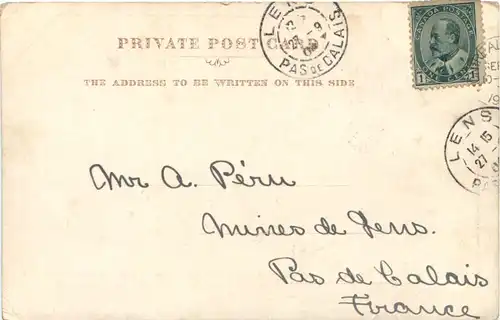 LENS
12
27 - 9
PAS DE CALAIS
CANADA POSTAGE
1
PRIVATE POST CARD
THE ADDRESS TO BE WRITTEN ON THIS SIDE
LENS
14 15
27 -
Mr A. Péru
Mines de Lens.
Pas de Calais
France